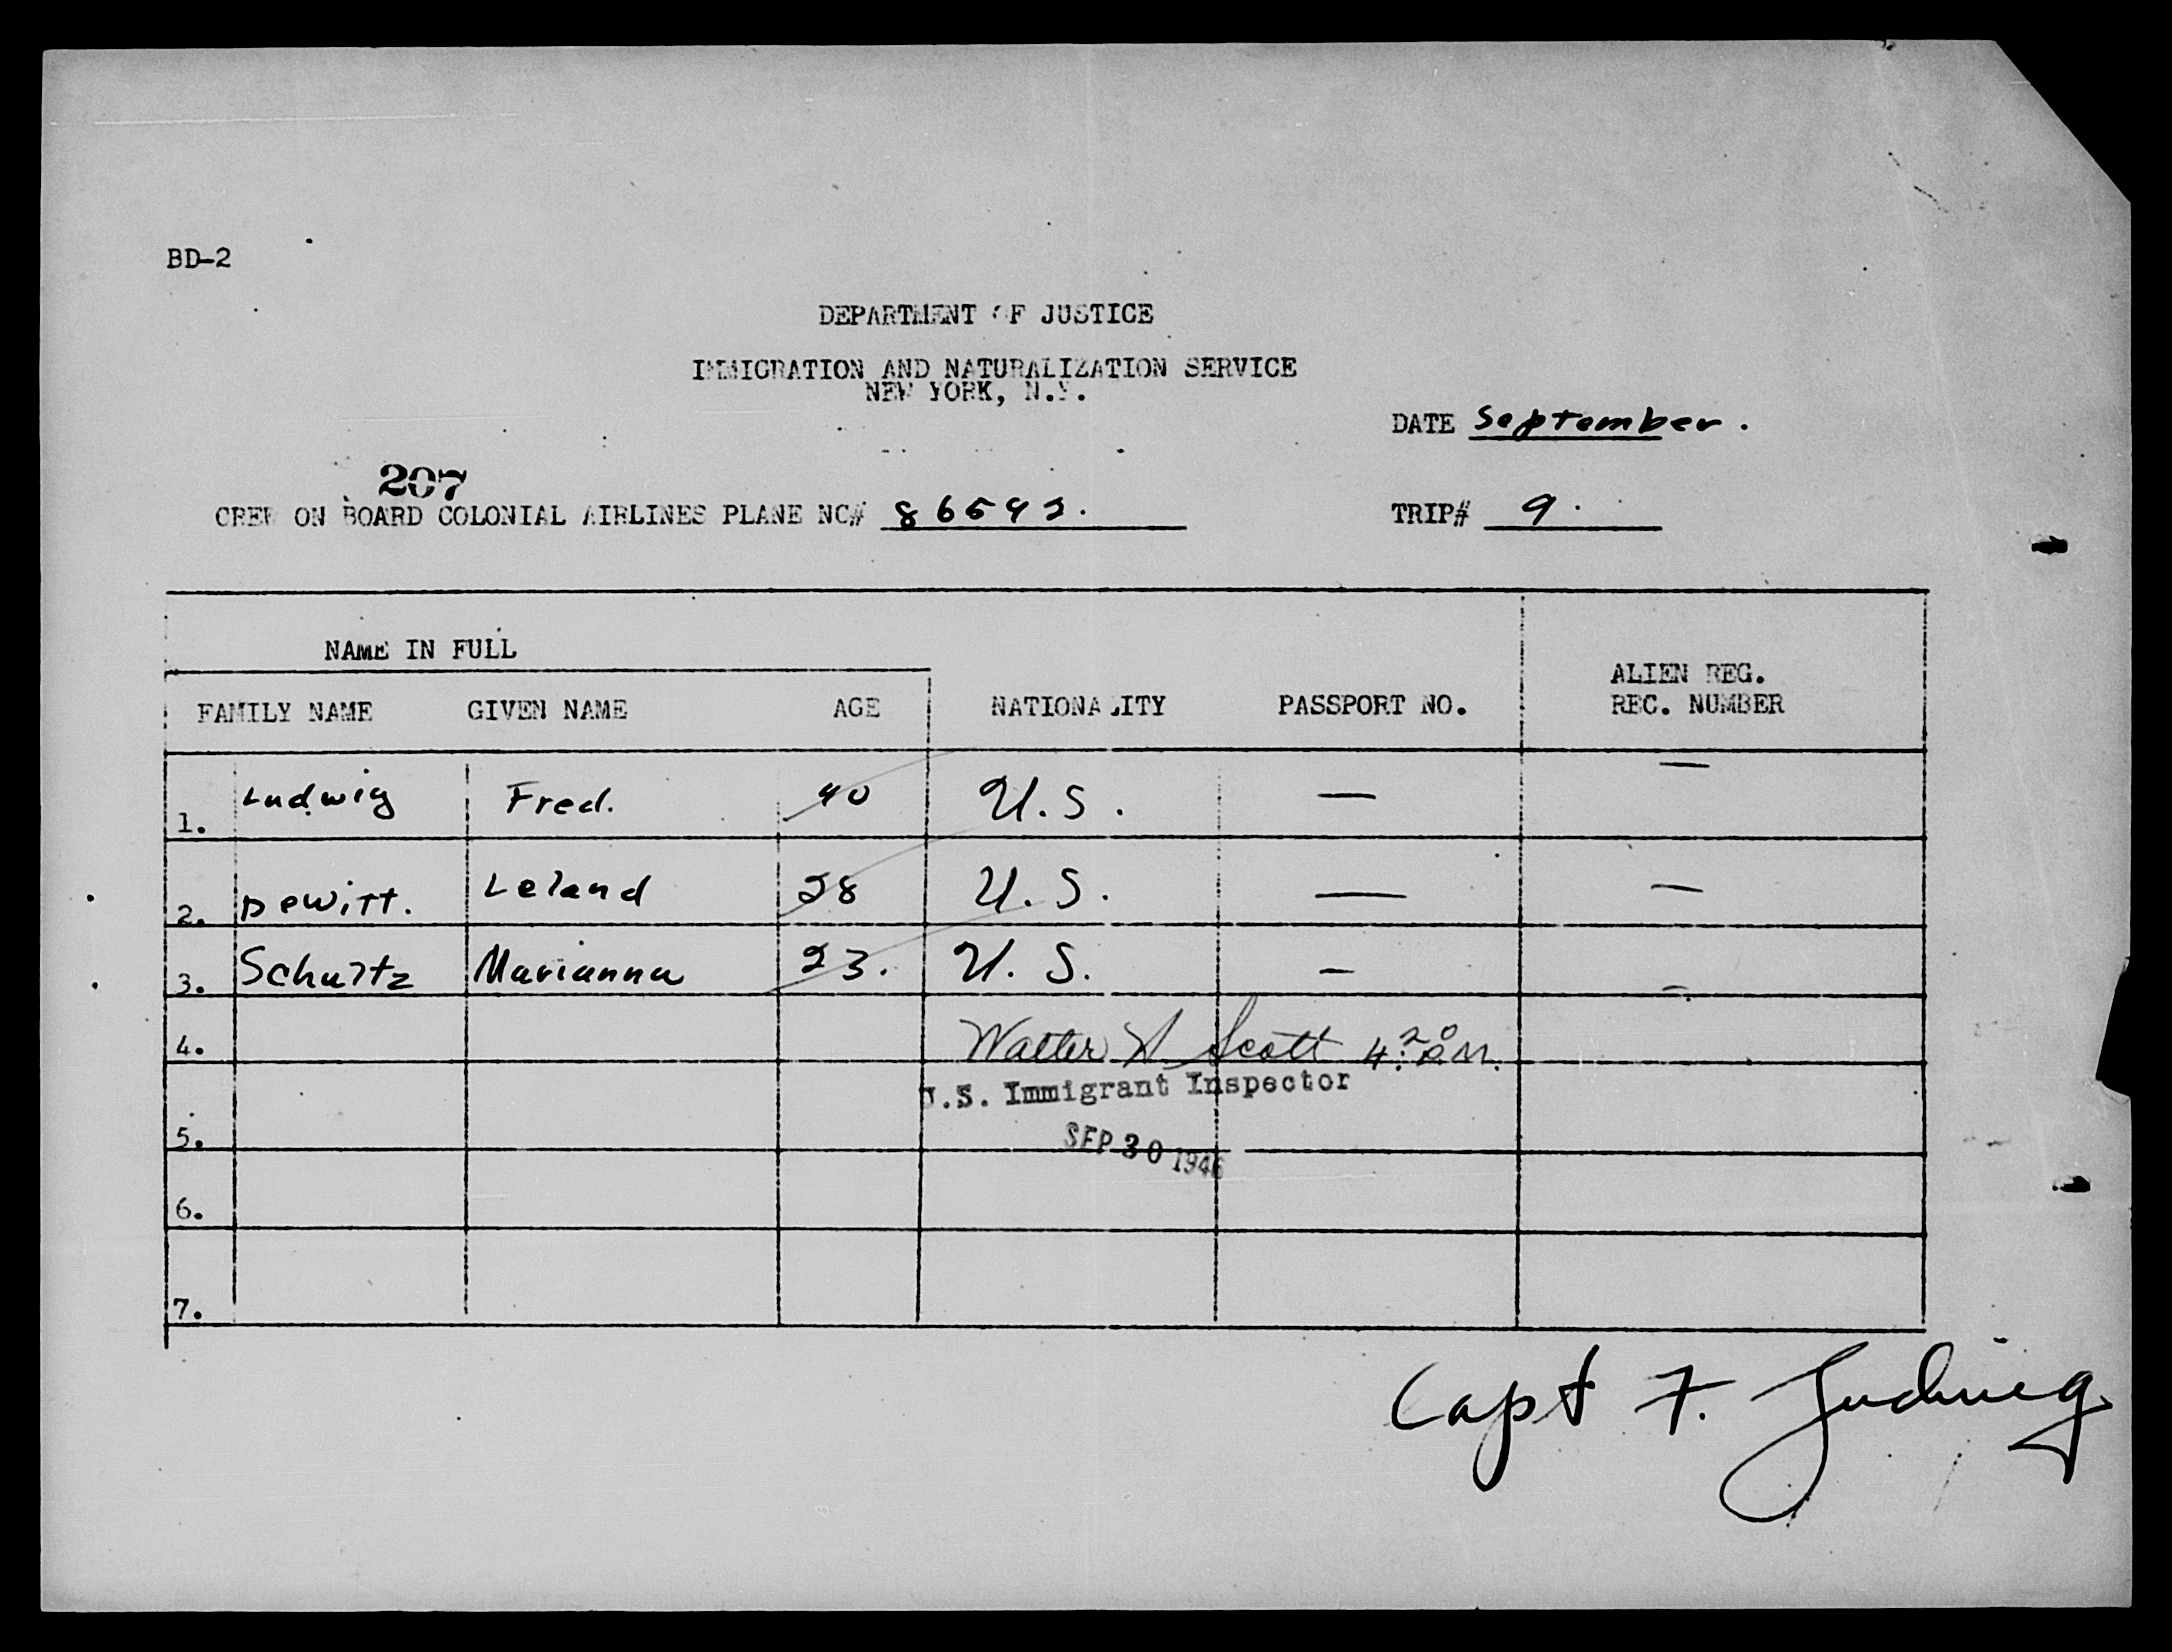 BD-2
DEPARTMENT OF JUSTICE
IMMIGRATION AND NATURALIZATION SERVICE
NEW YORK, N.Y.
DATE September.
207
CREW ON BOARD COLONIAL AIRLINES PLANE NC# 86592. TRIP# 9.
NAME IN FULL
FAMILY NAME GIVEN NAME AGE NATIONALITY PASSPORT NO. ALIEN REG. REC. NUMBER
1. Ludwig Fred. 40 U.S. — —
2. DeWitt. Leland 28 U.S. — —
3. Schultz Marianna 23. U.S. — —
4. Walter W Scott 4:20 PM.
U.S. Immigrant Inspector
5. SEP 30 1946
6.
7.
Capt F. Ludwig